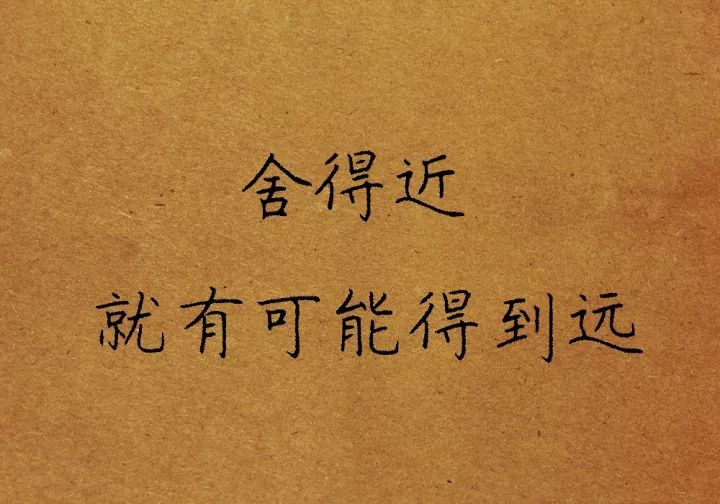 舍得近
就有可能得到远